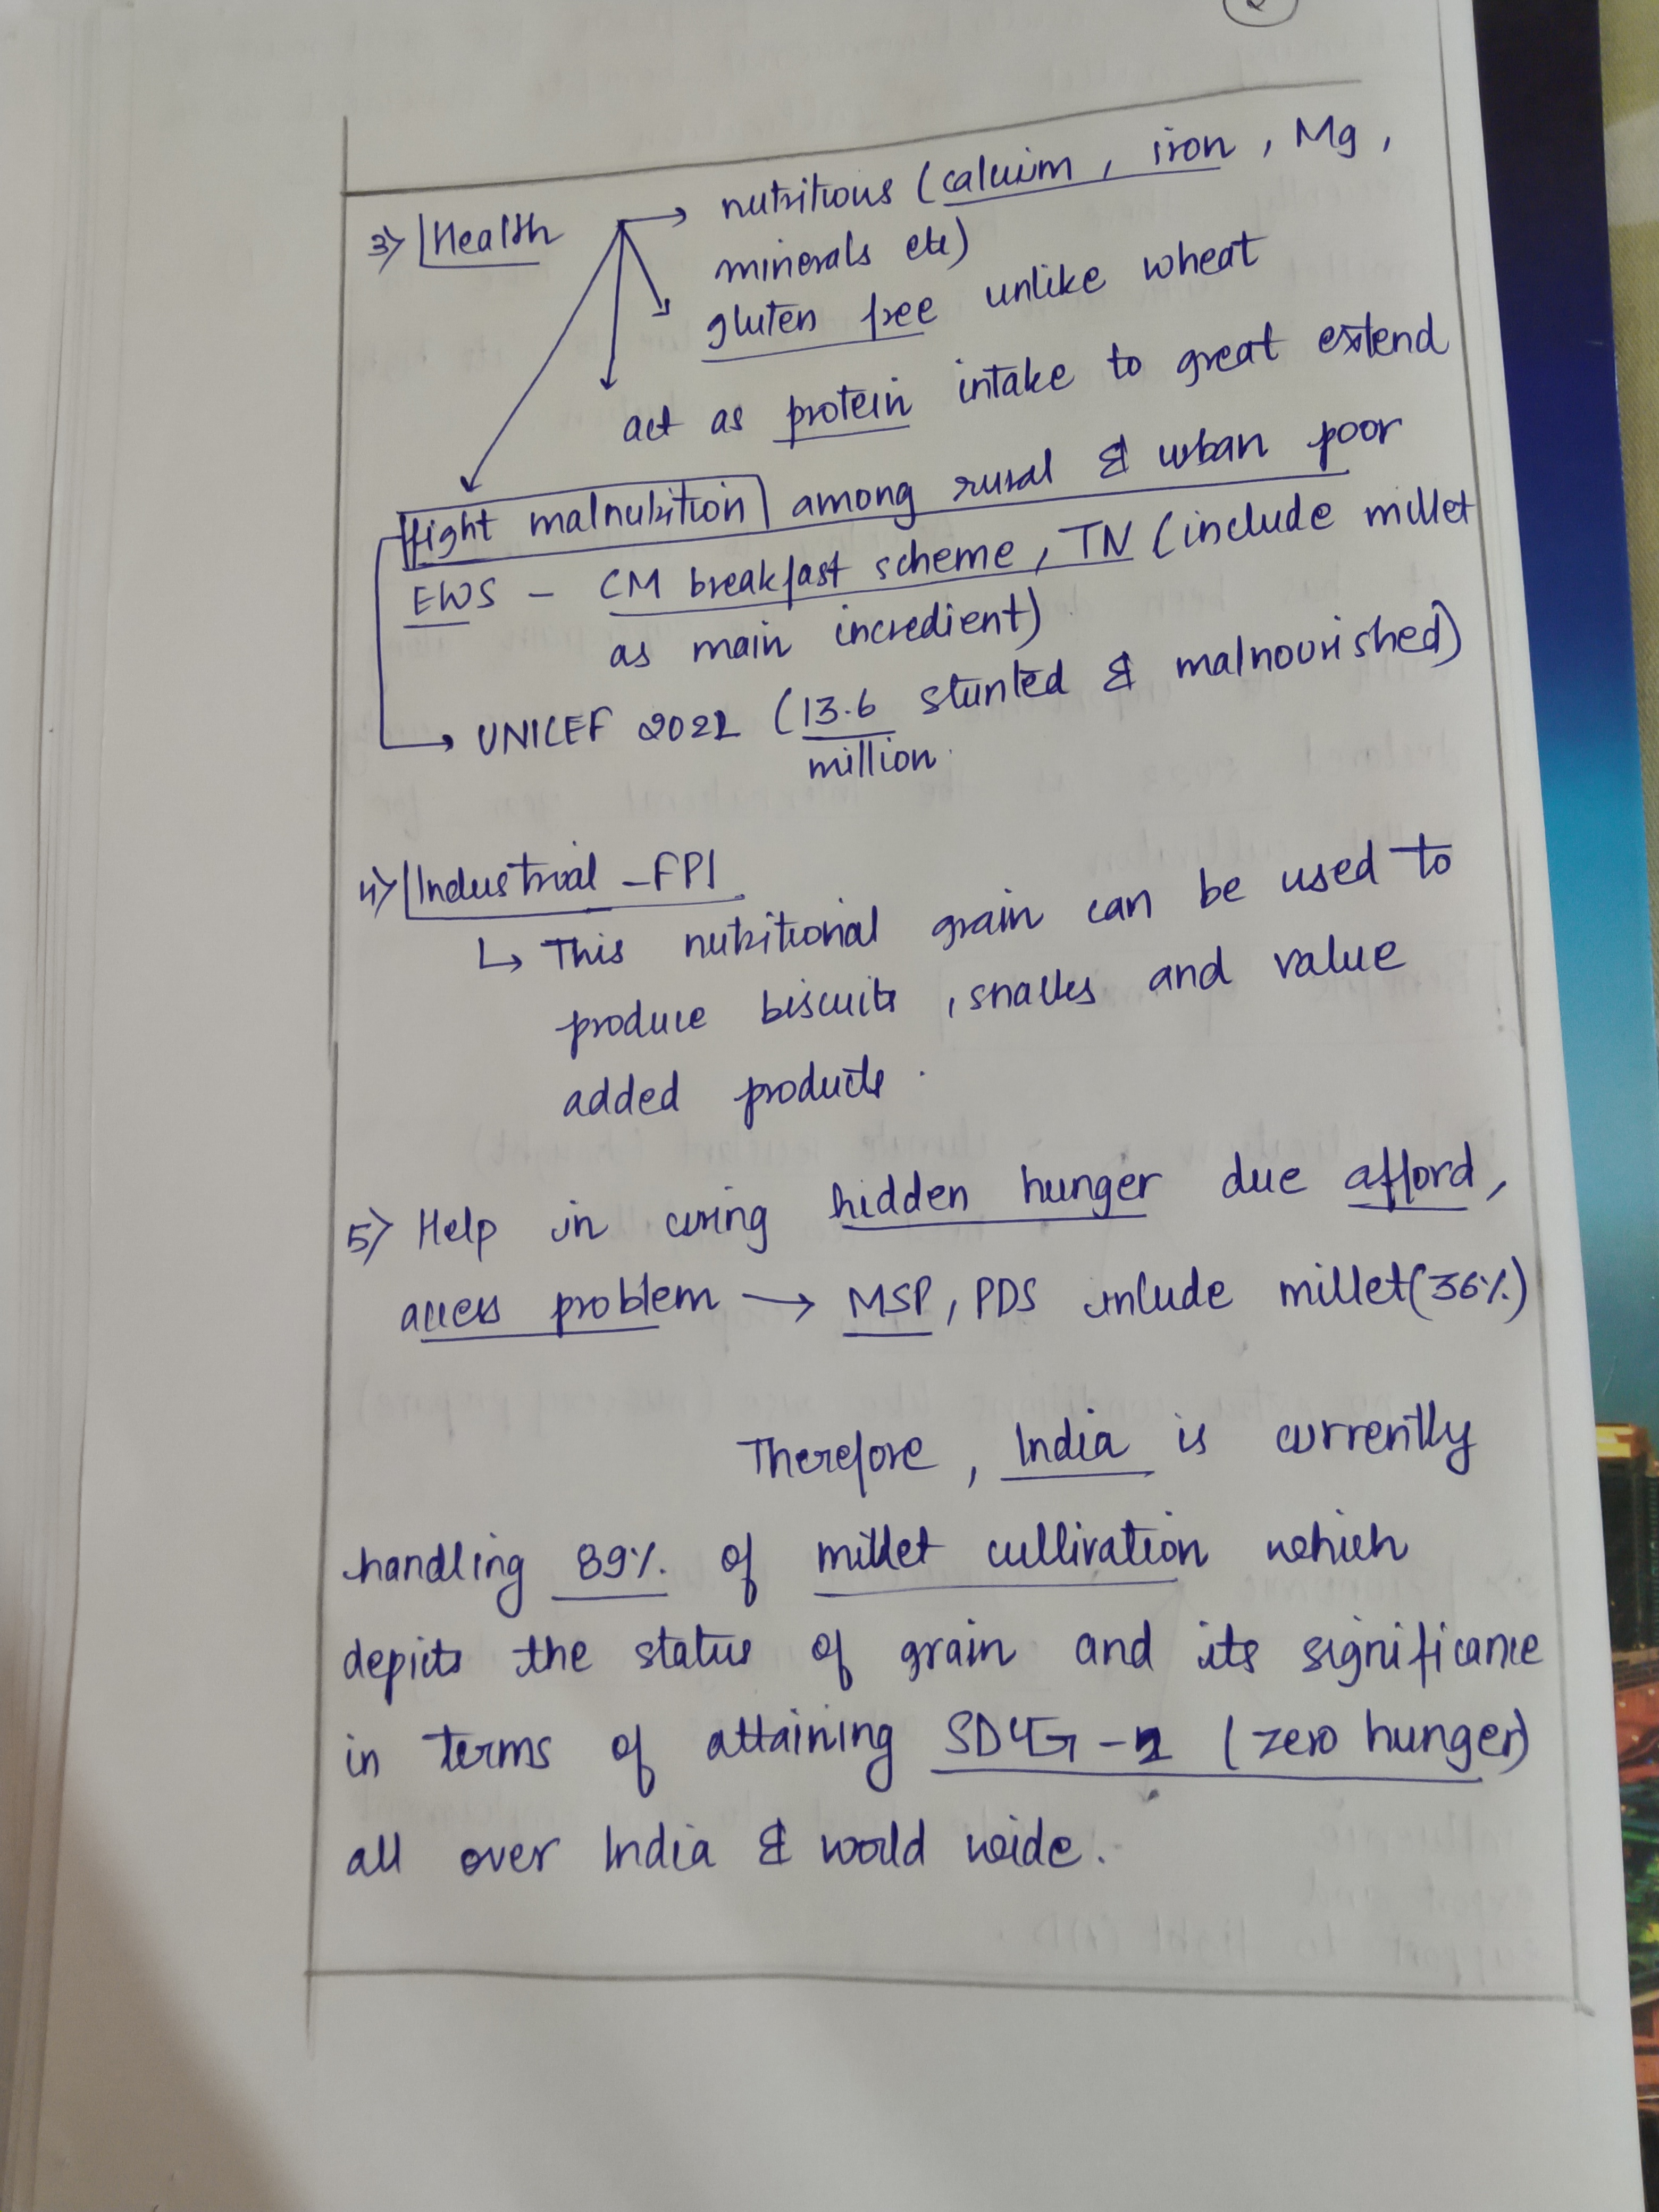 2
3) Health → nutritious (calcium, iron, Mg,
minerals etc)
gluten free unlike wheat
act as protein intake to great extend
fight malnutrition among rural & urban poor
EWS - CM breakfast scheme, TN (include millet
as main incredient)
→ UNICEF 2022 (13.6 stunted & malnourished)
million.
4) Industrial - FPI
↳ This nutritional grain can be used to
produce biscuits, snacks and value
added products.
5) Help in curing hidden hunger due afford,
access problem → MSP, PDS include millet (36%)
Therefore, India is currently
handling 89% of millet cultivation which
depicts the status of grain and its significance
in terms of attaining SDG-2 (zero hunger)
all over India & world wide.